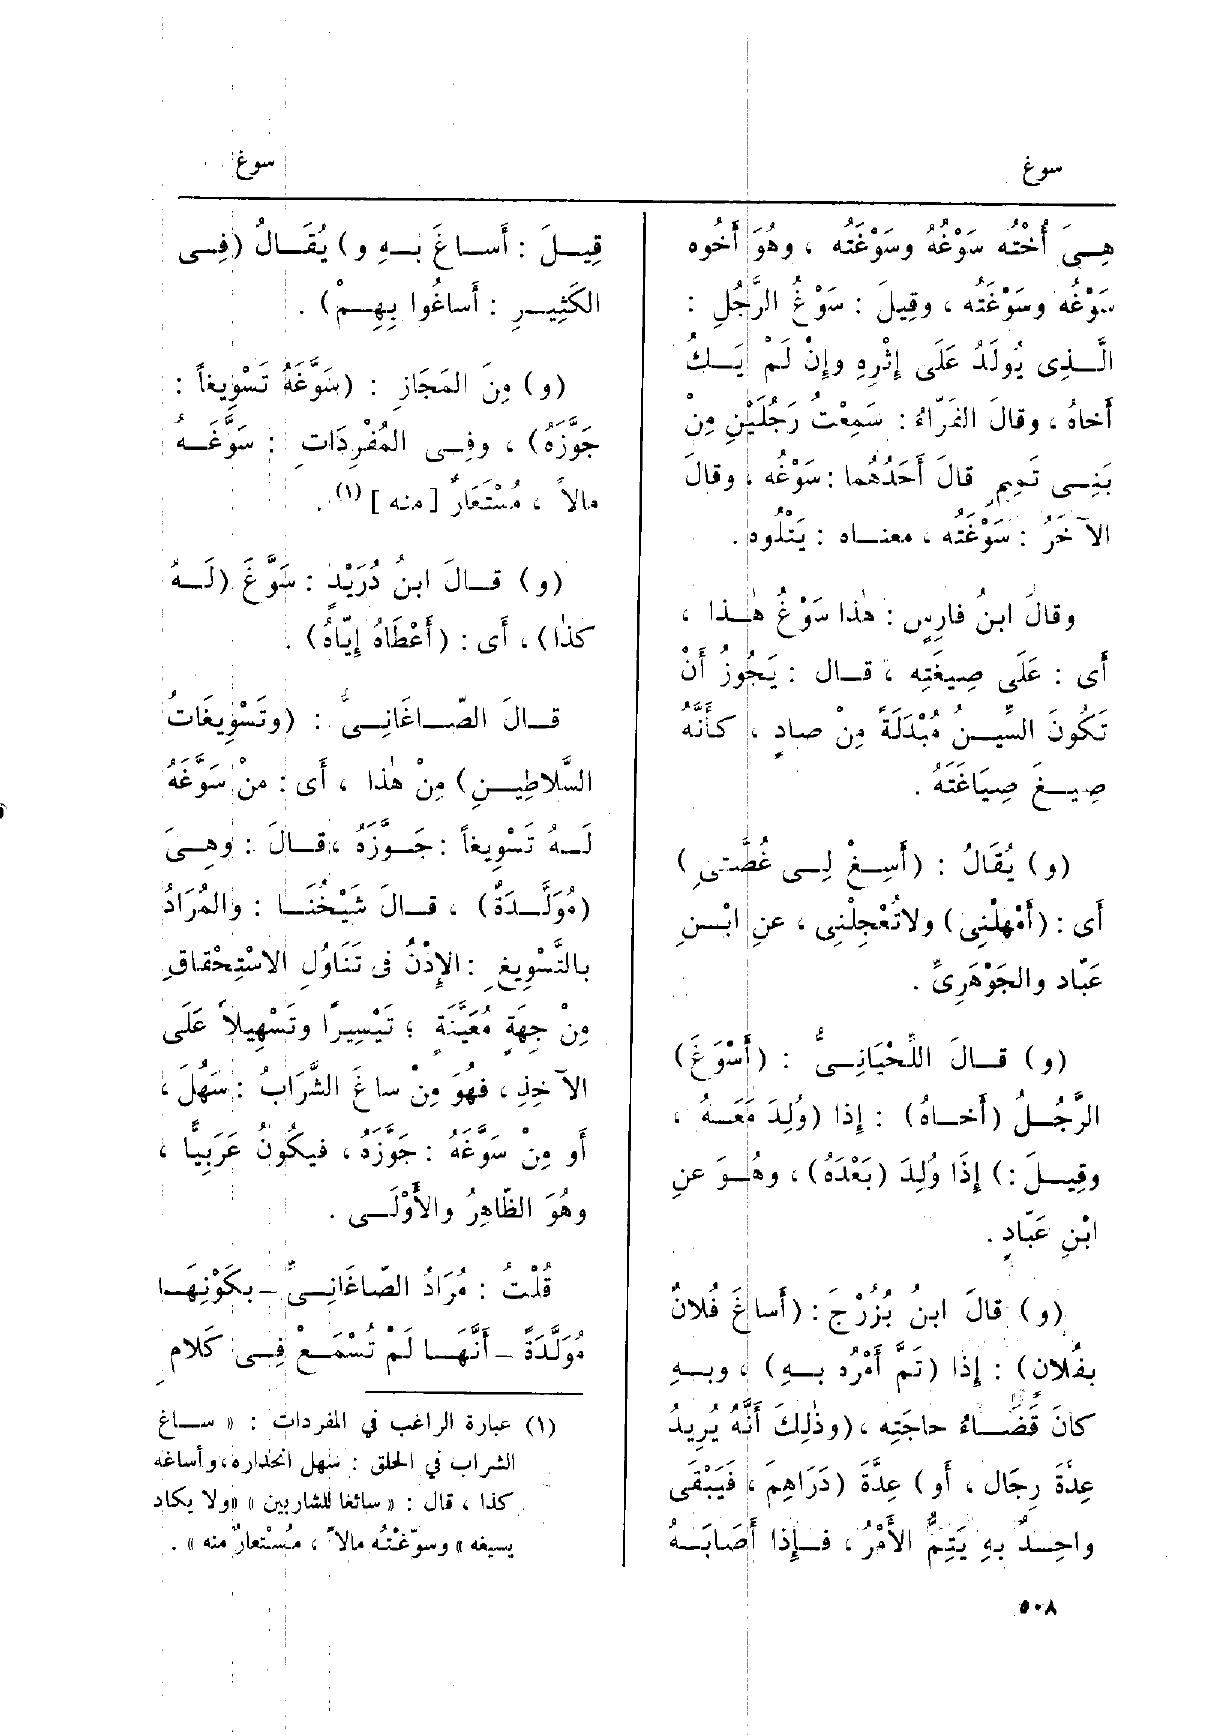 سوغ
سوغ
هِـىَ أُخْتُه سَوْغُهُ وسَوْغَتُه ، وهُوَ أَخُوه
سَوْغُه وسَوْغَتُه ، وقِيلَ : سَوْغُ الرَّجُلِ :
الَّـذِى يُولَدُ عَلَى إِثْرِهِ وإِنْ لَمْ يَـكُ
أَخاهُ ، وقالَ الفَرّاءُ : سَمِعْتُ رَجُلَيْنِ مِن
بَنِـى تَمِيمٍ قالَ أَحَدُهُما : سَوْغُه ، وقالَ
الآخَرُ : سَوْغَتُه ، معنـاه : يَتْلُوه .
وقالَ ابنُ فارِسٍ : هٰذا سَوْغُ هٰـذا ،
أَى : عَلَى صِيغَتِه ، قـال : يَجُوزُ أَنْ
تَكُونَ السِّيـنُ مُبْدَلَةً مِنْ صادٍ ، كأَنَّهُ
صِيـغَ صِيَاغَتَهُ .
(و) يُقَالُ : (أَسِـغْ لِـى غُصَّتِى)
أَى : (أَمْهِلْنِى) ولاتُعْجِلْنِى ، عنِ ابْـنِ
عَبّاد والجَوْهَرِىِّ .
(و) قـالَ اللِّحْيَانِـىُّ : (أَسْوَغَ)
الرَّجُـلُ (أَخـاهُ) : إذا (وُلِدَ مَعَـهُ ،
وقِيـلَ :) إِذَا وُلِدَ (بَعْدَهُ) ، وهُـوَ عنِ
ابْنِ عَبّادٍ .
(و) قالَ ابنُ بُزُرْجَ : (أَساغَ فُلانٌ
بفُلانٍ) : إِذا (تَمَّ أَمْرُه بـهِ) ، وبـهِ
كانَ قَضَـاءُ حاجَتِه ، (وذٰلِكَ أَنَّهُ يُرِيدُ
عِدَّةَ رِجَال ، أَو) عِدَّةَ (دَرَاهِمَ ، فَيَبْقَى
واحِـدٌ بهِ يَتِمُّ الأَمْرُ ، فـإِذا أَصَابَـهُ
قِيـلَ : أَسـاغَ بـهِ و) يُقَـالُ (فِـى
الكَثِيـرِ : أَساغُوا بِهِـمْ) .
(و) مِنَ المَجَازِ : (سَوَّغَهُ تَسْوِيغاً :
جَوَّزَهُ) ، وفِـى المُفْرداتِ : سَوَّغَـهُ
مالاً ، مُسْتَعَارٌ [منه] (١) .
(و) قـالَ ابنُ دُرَيْدٍ : سَوَّغَ (لَـهُ
كذٰا) ، أَى : (أَعْطَاهُ إِيّاهُ) .
قـالَ الصّـاغَانِـىُّ : (وتَسْوِيغَاتُ
السَّلاطِيـنِ) مِنْ هٰذا ، أَى : منْ سَوَّغَهُ
لَـهُ تَسْوِيغاً : جَـوَّزَهُ ، قـالَ : وهِـىَ
(مُوَلَّـدَةٌ) ، قـالَ شَيْخُنَـا : والمُرَادُ
بالتَّسْوِيغِ : الإِذْنُ فى تَنَاوُلِ الاسْتِحْقاقِ
مِنْ جِهَةٍ مُعَيَّنَةٍ ؛ تَيْسِيرًا وتَسْهِيلاً عَلَى
الآخِذِ ، فهُوَ مِنْ ساغَ الشَّرَابُ : سَهُلَ ،
أَو مِنْ سَوَّغَهُ : جَوَّزَه ، فيكُونُ عَرَبِيًّا ،
وهُوَ الظّاهِرُ والأَوْلَـى .
قُلْتُ : مُرَادُ الصّاغَانِـىِّ - بكَوْنِهَـا
مُوَلَّدَةً - أَنَّهَـا لَمْ تُسْمَـعْ فِـى كَلامِ
(١) عبارة الراغب في المفردات : « سـاغ
الشراب في الحلق : سهل انحداره ، وأساغه
كذا ، قال : « سائغا للشاربين » «ولا يكاد
يسيغه » وسوّغْتُه مالاً ، مُسْتعارٌ منه » .
٥٠٨